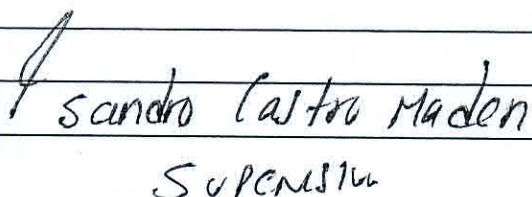 Sandro Castro Maden
Supervisor